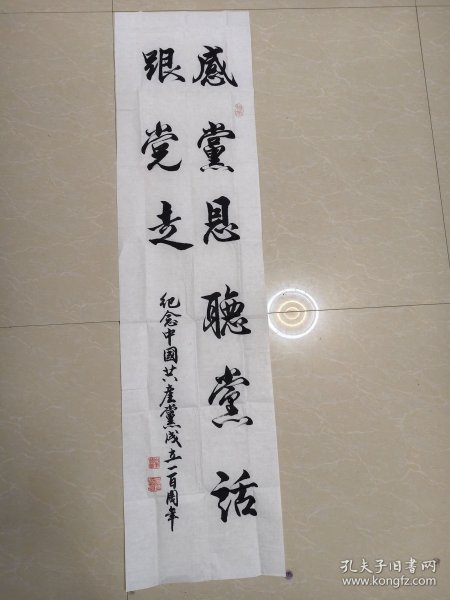 感黨恩聽黨話
跟党走
纪念中國共產黨成立一百周年
孔夫子旧书网
www.kongfz.com